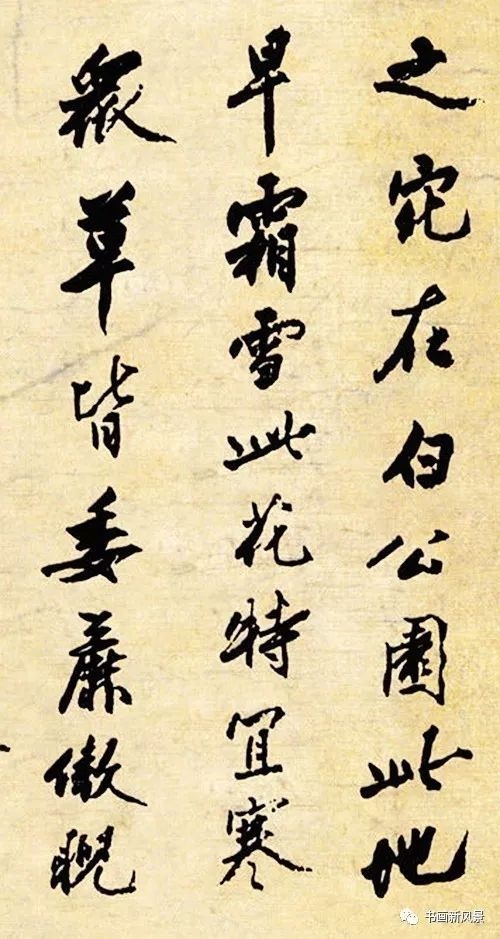 之宛在白公園此地
早霜雪此花特宜寒
眾草皆委靡傲睨
书画新风景